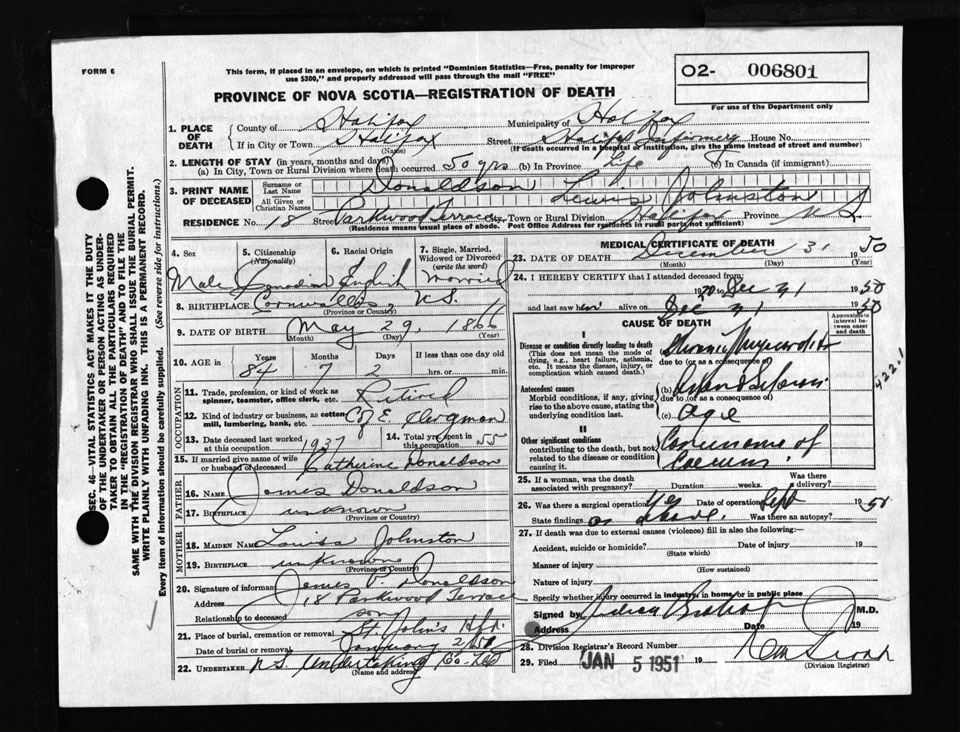 FORM 6
This form, if placed in an envelope, on which is printed "Dominion Statistics—Free, penalty for improper
use $300," and properly addressed will pass through the mail "FREE"
O2- 006801
For use of the Department only
PROVINCE OF NOVA SCOTIA—REGISTRATION OF DEATH
1. PLACE OF DEATH
County of Halifax Municipality of Halifax
If in City or Town Halifax Street Halifax Infirmary House No.
(Name) (If death occurred in a hospital or institution, give the name instead of street and number)
2. LENGTH OF STAY (in years, months and days)
(a) In City, Town or Rural Division where death occurred 50 yrs (b) In Province Life (c) In Canada (if immigrant)
3. PRINT NAME OF DECEASED
Surname or Last Name Donaldson
All Given or Christian Names Lewis Johnston
RESIDENCE No. 18 Street Parkwood Terrace City, Town or Rural Division Halifax Province N S
(Residence means usual place of abode. Post Office Address for residents in rural parts not sufficient)
4. Sex Male
5. Citizenship (Nationality) Canadian
6. Racial Origin English
7. Single, Married, Widowed or Divorced (write the word) Married
8. BIRTHPLACE Cornwallis, N.S.
(Province or Country)
9. DATE OF BIRTH May 29, 1866
(Month) (Day) (Year)
10. AGE in Years 84 Months 7 Days 2 If less than one day
hrs. or min.
OCCUPATION
11. Trade, profession, or kind of work as
spinner, teamster, office clerk, etc. Retired
12. Kind of industry or business, as cotton
mill, lumbering, bank, etc. C of E Clergman
13. Date deceased last worked
at this occupation 1937
14. Total yrs. spent in
this occupation 55
15. If married give name of wife
or husband of deceased Catherine Donaldson
FATHER
16. Name James Donaldson
17. Birthplace unknown
(Province or Country)
MOTHER
18. MAIDEN NAME Louisa Johnston
19. BIRTHPLACE unknown
(Province or Country)
20. Signature of informant James Donaldson
Address 18 Parkwood Terrace
Relationship to deceased son
21. Place of burial, cremation or removal St. John's
Date of burial or removal January 2 /51
22. UNDERTAKER N.S. Undertaking Co. Ltd
(Name and address)
MEDICAL CERTIFICATE OF DEATH
23. DATE OF DEATH December 31 1950
(Month) (Day) (Year)
24. I HEREBY CERTIFY that I attended deceased from:
Dec 31 1950
and last saw h alive on Dec 31 1950
CAUSE OF DEATH
Approximate interval between onset and death
I
Disease or condition directly leading to death
(This does not mean the mode of dying, e.g., heart failure, asthenia, etc. It means the disease, injury, or complication which caused death.)
Chronic Myocarditis
due to (or as a consequence of)
Antecedent causes
Morbid conditions, if any, giving rise to the above cause, stating the underlying condition last.
(b)
due to (or as a consequence of)
(c) age
II
Other significant conditions
contributing to the death, but not related to the disease or condition causing it.
Carcinoma of
Caecum
422.1
25. If a woman, was the death
associated with pregnancy? Duration weeks. Was there a delivery?
26. Was there a surgical operation? Yes Date of operation Sept 1950
State findings as above. Was there an autopsy?
27. If death was due to external causes (violence) fill in also the following:
Accident, suicide or homicide? Date of injury 19
(State which)
Manner of injury
(How sustained)
Nature of injury
Specify whether injury occurred in industry, in home, or in public place
Signed by M.D.
Address Date 19
28. Division Registrar's Record Number
29. Filed JAN 5 1951 19
(Division Registrar)
SEC. 46—VITAL STATISTICS ACT MAKES IT THE DUTY
OF THE UNDERTAKER OR PERSON ACTING AS UNDER-
TAKER TO OBTAIN ALL THE PARTICULARS REQUIRED
IN THE "REGISTRATION OF DEATH" AND TO FILE THE
SAME WITH THE DIVISION REGISTRAR WHO SHALL ISSUE THE BURIAL PERMIT.
WRITE PLAINLY WITH UNFADING INK. THIS IS A PERMANENT RECORD.
Every item of information should be carefully supplied. (See reverse side for instructions.)